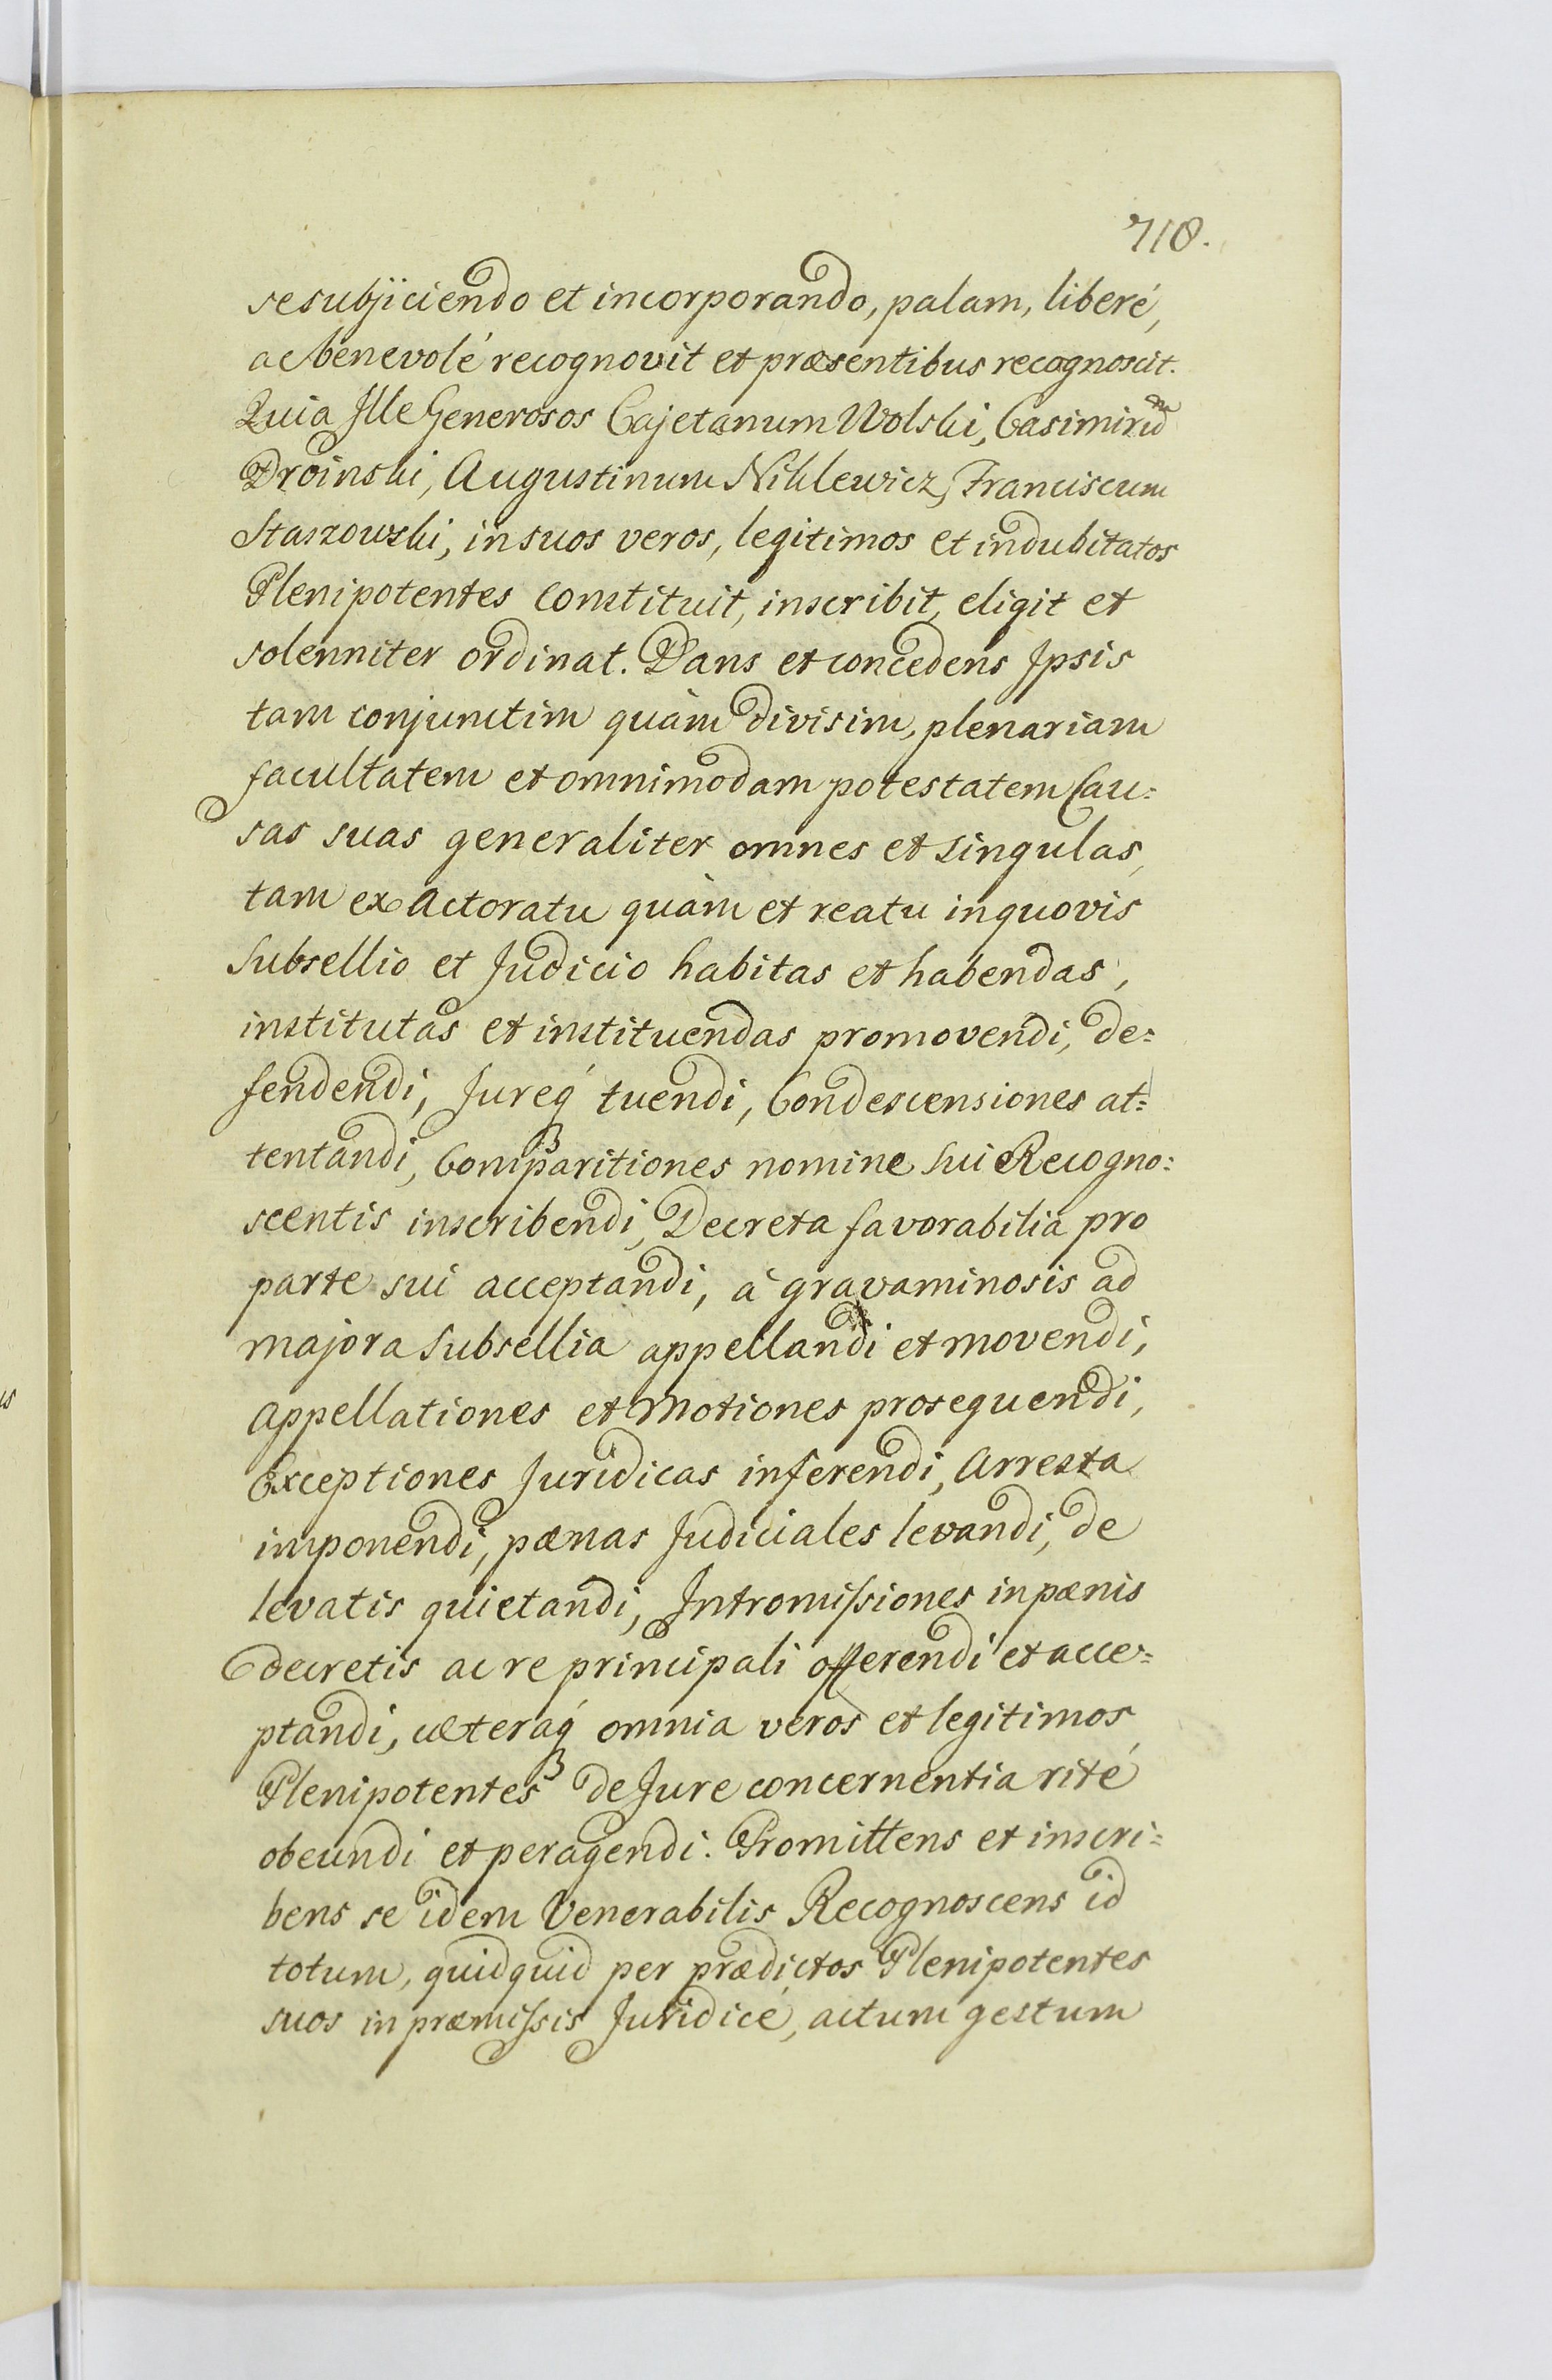 718.
se subjiciendo et incorporando, palam, liberé,
ac benevolé recognovit et præsentibus recognoscit.
Quia Ille Generosos Cajetanum Wolski, Casimirum
Droinski, Augustinum Niklewicz, Franciscum
Staszowski, in suos veros, legitimos et indubitatos
Plenipotentes constituit, inscribit, eligit et
solenniter ordinat. Dans et concedens Ipsis
tam conjunctim quàm divisim, plenariam
facultatem et omnimodam potestatem Cau=
sas suas generaliter omnes et singulas,
tam ex Actoratu quàm et reatu in quovis
Subsellio et Judicio habitas et habendas,
institutas et instituendas promovendi, de=
fendendi, Jureq́ tuendi, Condescensiones at=
tentandi, Comparitiones nomine sui Recogno=
scentis inscribendi, Decreta favorabilia pro
parte sui acceptandi, à gravaminosis ad
majora Subsellia appellandi et movendi,
Appellationes et Motiones prosequendi,
Exceptiones Juridicas inferendi, Arresta
imponendi, pænas Judiciales levandi, de
levatis quietandi, Intromissiones in pænis
decretis ac re principali offerendi et acce=
ptandi, cæteraq́ omnia veros et legitimos
Plenipotentes de Jure concernentia rité
obeundi et peragendi. Promittens et inscri=
bens se idem Venerabilis Recognoscens id
totum, quidquid per prædictos Plenipotentes
suos in præmissis Juridicé, actum gestum